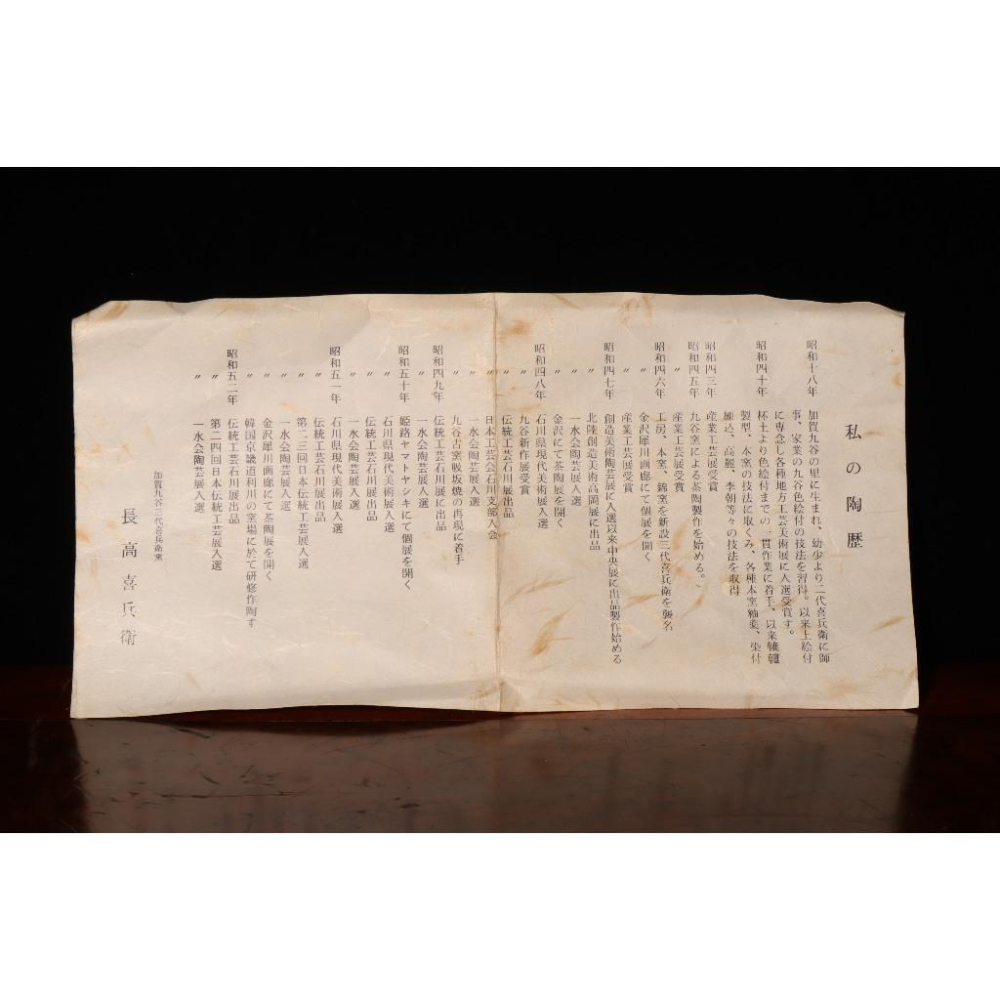 私の陶歴
昭和十八年 加賀九谷の里に生まれ、幼少より二代喜兵衛に師
事、家業の九谷色絵付の技法を習得。以来上絵付
に専念し各種地方工芸美術展に入選受賞す。
昭和四十年 杯土より色絵付までの一貫作業に着手、以来轆轤
製型、本窯の技法に取くみ、各種本窯釉薬、染付
練込、高麗、李朝等々の技法を取得
昭和四三年 産業工芸展受賞
昭和四五年 九谷窯による茶陶製作を始める。
〃 産業工芸展受賞
昭和四六年 工房、本窯、錦窯を新設三代喜兵衛を襲名
〃 金沢犀川画廊にて個展を開く
〃 産業工芸展受賞
昭和四七年 創造美術陶芸展に入選以来中央展に出品製作始める
〃 北陸創造美術高岡展に出品
〃 一水会陶芸展入選
〃 金沢にて茶陶展を開く
昭和四八年 石川県現代美術展入選
〃 九谷新作展受賞
〃 伝統工芸石川展出品
〃 日本工芸会石川支部入会
〃 一水会陶芸展入選
〃 九谷古窯吸坂焼の再現に着手
昭和四九年 伝統工芸石川展に出品
〃 一水会陶芸展入選
昭和五十年 姫路ヤマトヤシキにて個展を開く
〃 石川県現代美術展入選
〃 伝統工芸石川展出品
〃 一水会陶芸展入選
昭和五一年 石川県現代美術展入選
〃 伝統工芸石川展出品
〃 第二三回日本伝統工芸展入選
〃 一水会陶芸展入選
〃 金沢犀川画廊にて茶陶展を開く
〃 韓国京畿道利川の窯場に於て研修作陶す
昭和五二年 伝統工芸石川展出品
〃 第二四回日本伝統工芸展入選
〃 一水会陶芸展入選
加賀九谷三代喜兵衛窯
長高喜兵衛